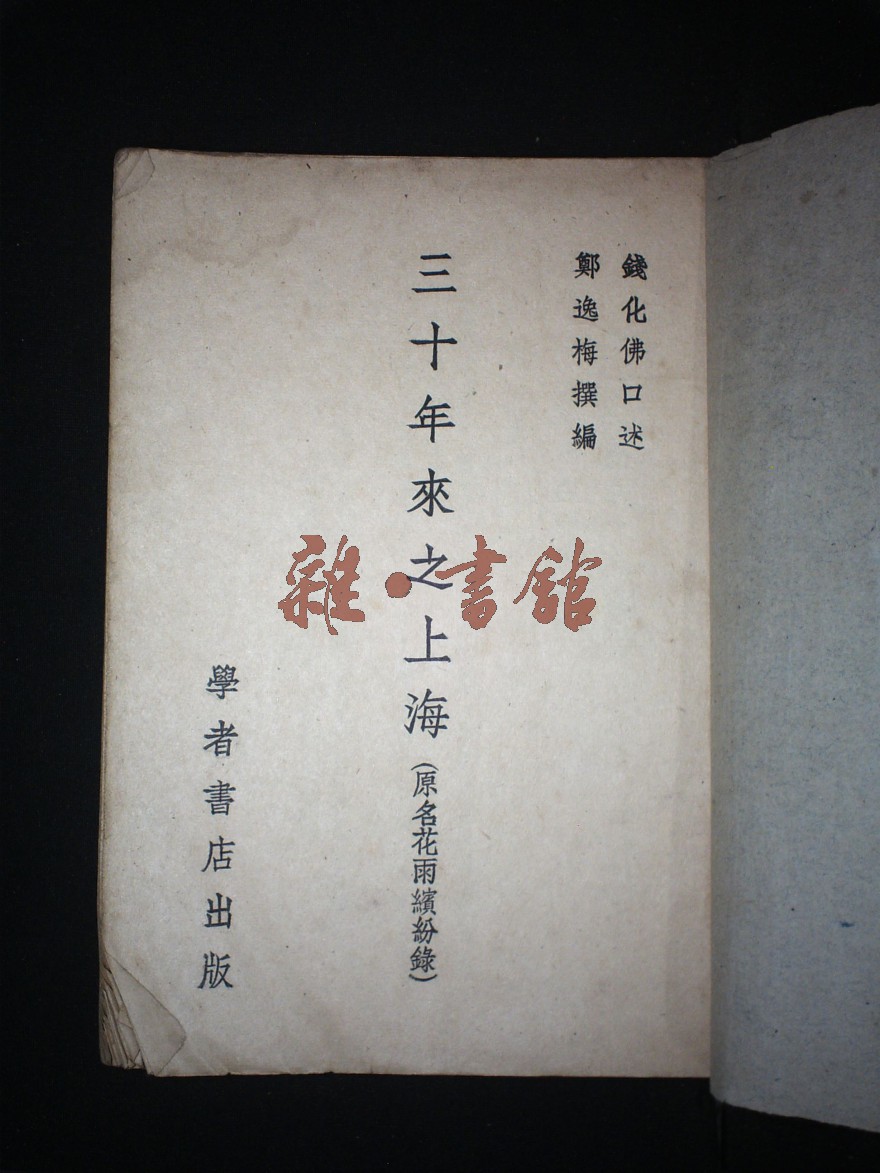 錢化佛口述
鄭逸梅撰編
三十年來之上海(原名花雨繽紛錄)
學者書店出版
雜·書館